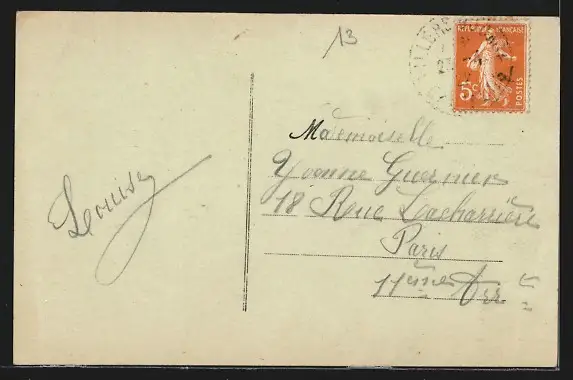 13
RÉPUBLIQUE FRANÇAISE
5c
POSTES
Mademoiselle
Yvonne Guernier
18 Rue Lacharrière
Paris
11ème Arrt
Louise